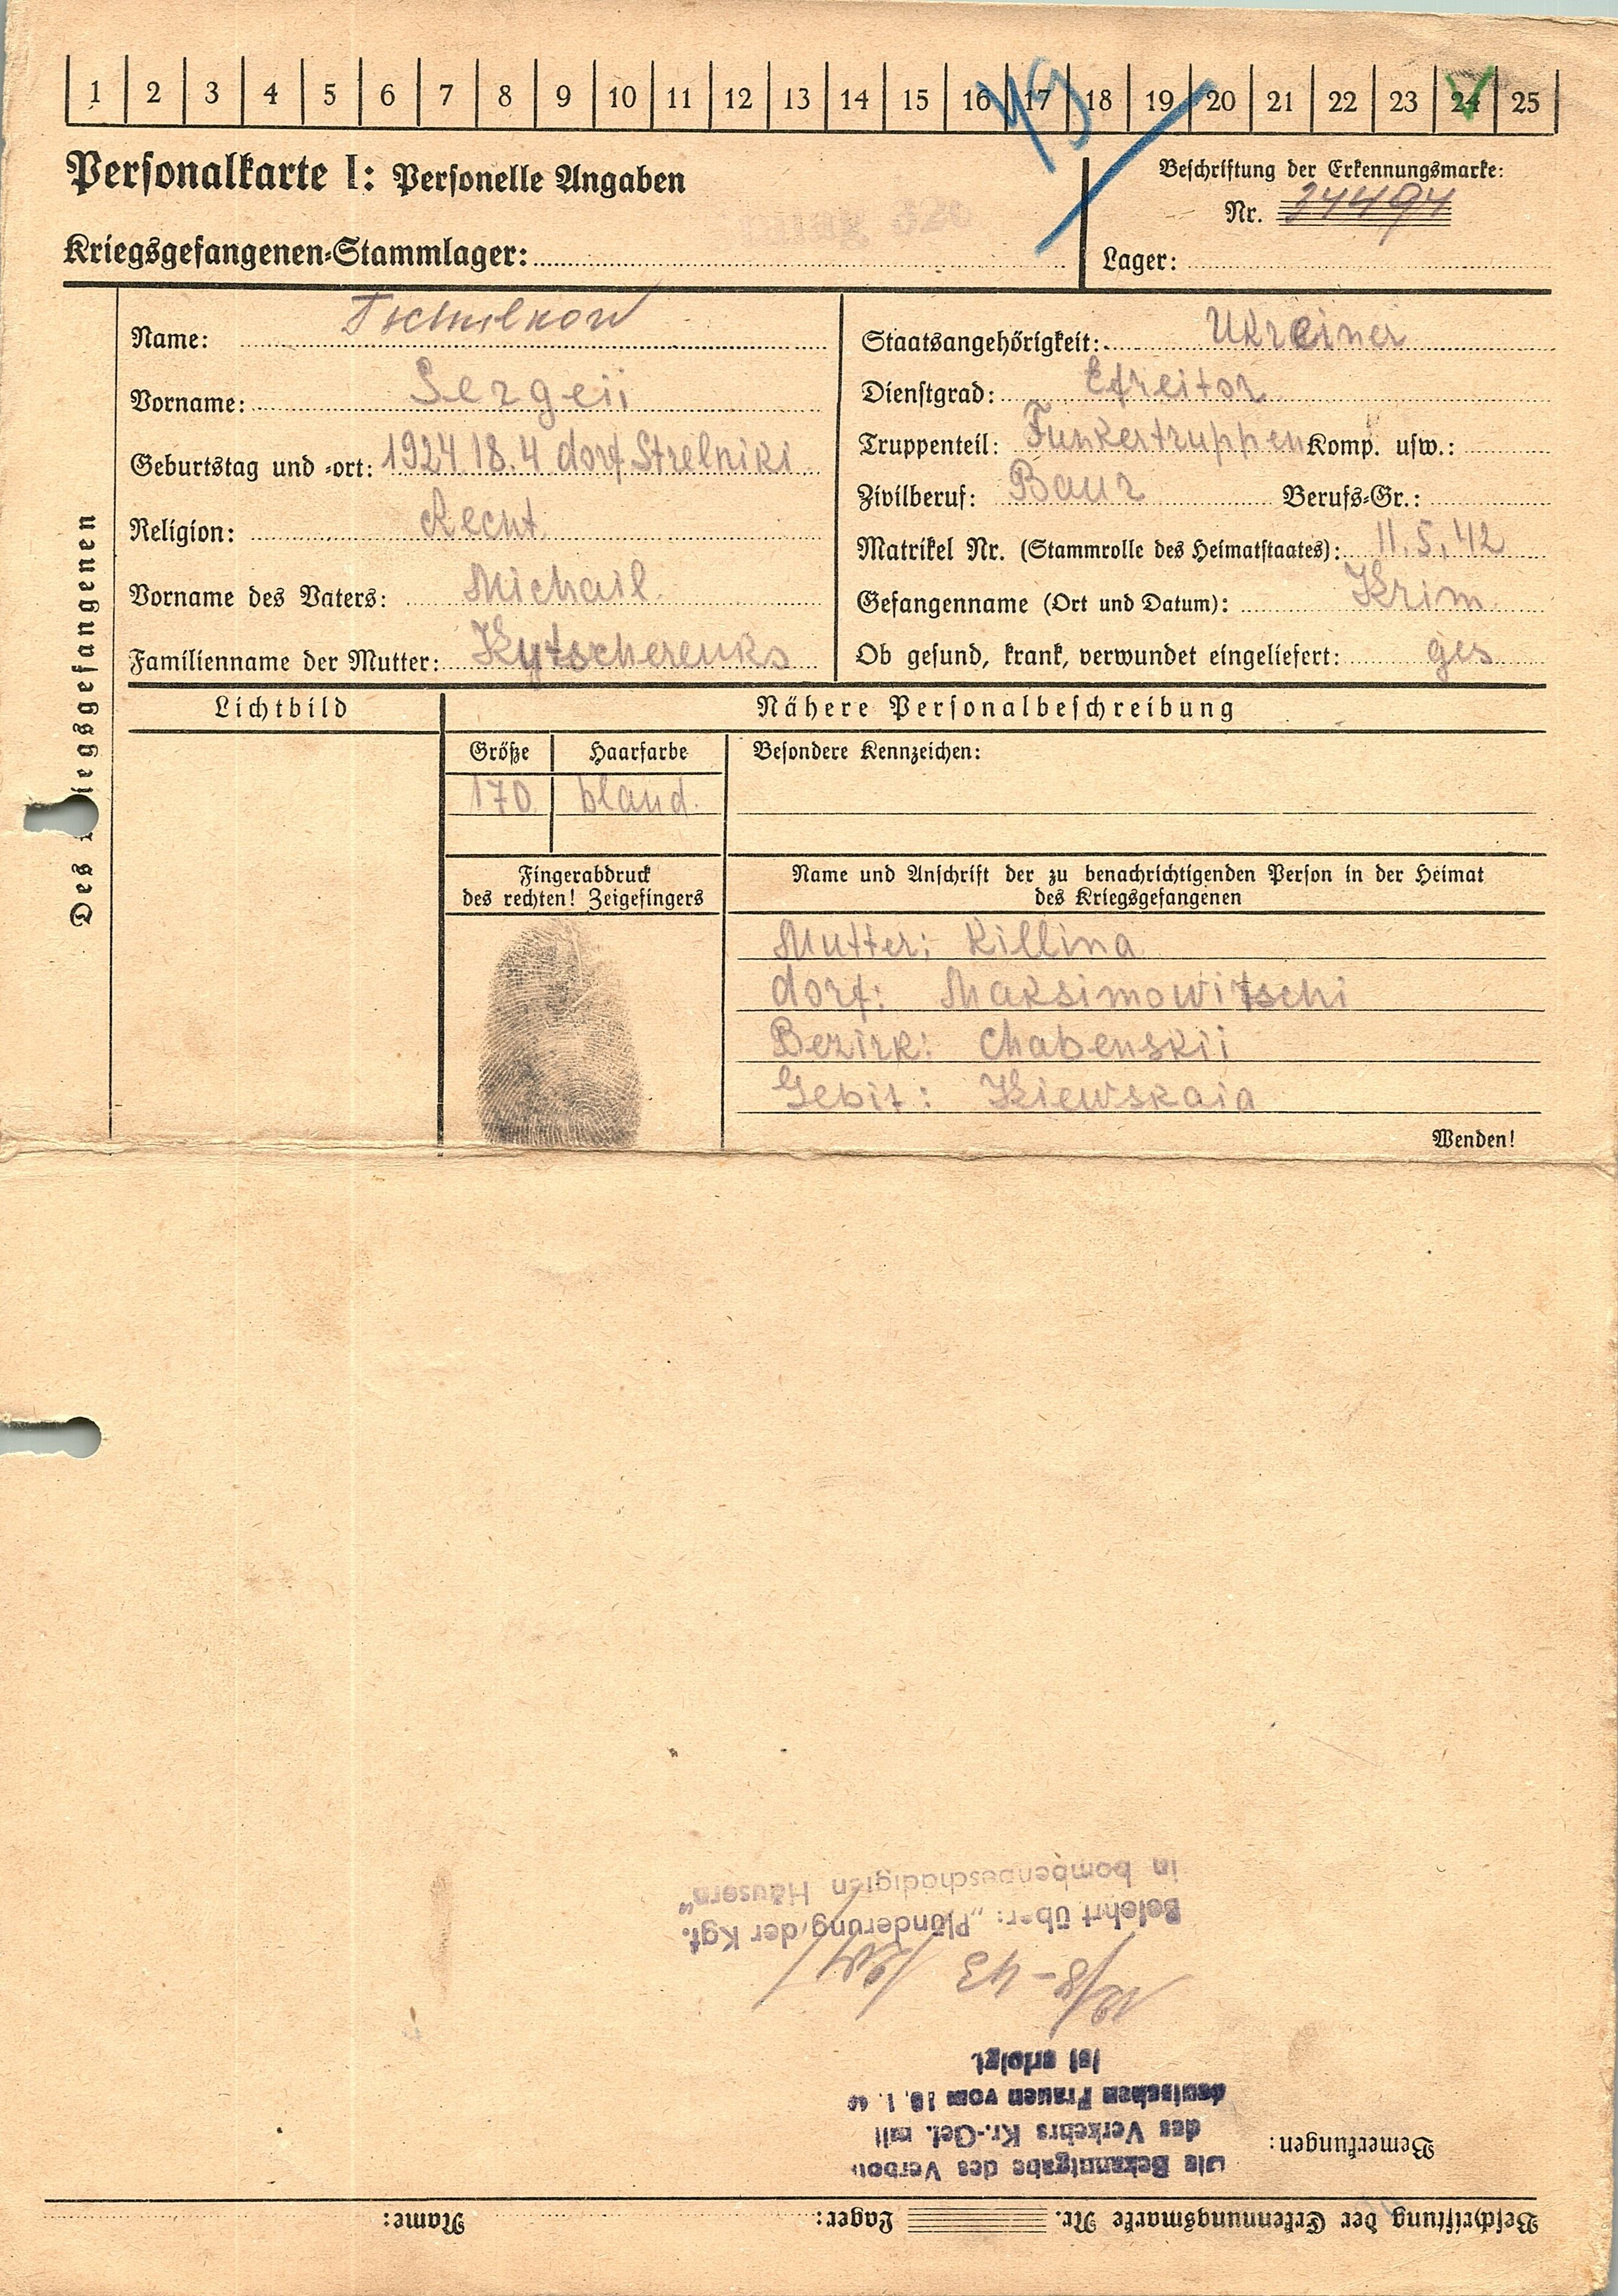 1 2 3 4 5 6 7 8 9 10 11 12 13 14 15 16 17 18 19 20 21 22 23 24 25
Personalkarte I: Personelle Angaben
Kriegsgefangenen-Stammlager:
Beschriftung der Erkennungsmarke:
Nr. 34494
Lager:
Des Kriegsgefangenen
Name: Tschulkow
Vorname: Sergeii
Geburtstag und -ort: 1924.18.4 dorf Strelniki
Religion: Recht.
Vorname des Vaters: Michail.
Familienname der Mutter: Kytscherenko
Staatsangehörigkeit: Ukreiner
Dienstgrad: Efreitor
Truppenteil: Funkertruppen Komp. usw.:
Zivilberuf: Baur Berufs-Gr.:
Matrikel Nr. (Stammrolle des Heimatstaates): 11.5.42
Gefangenname (Ort und Datum): Krim
Ob gesund, krank, verwundet eingeliefert: ges
Lichtbild
Nähere Personalbeschreibung
Größe Haarfarbe Besondere Kennzeichen:
170. bland.
Fingerabdruck
des rechten! Zeigefingers
Name und Anschrift der zu benachrichtigenden Person in der Heimat
des Kriegsgefangenen
Mutter: Killina
dorf: Maksimowitschi
Bezirk: Chabenskii
Gebit: Kiewskaia
Wenden!
Beschriftung der Erkennungsmarke Nr. Lager: Name:
Bemerkungen:
Die Bekanntgabe des Verbots
des Verkehrs Kr.-Gef. mit
deutschen Frauen vom
ist erfolgt.
12/8-43
Belehrt über: „Plünderung der Kgf.
in bombenbeschädigten Häusern“